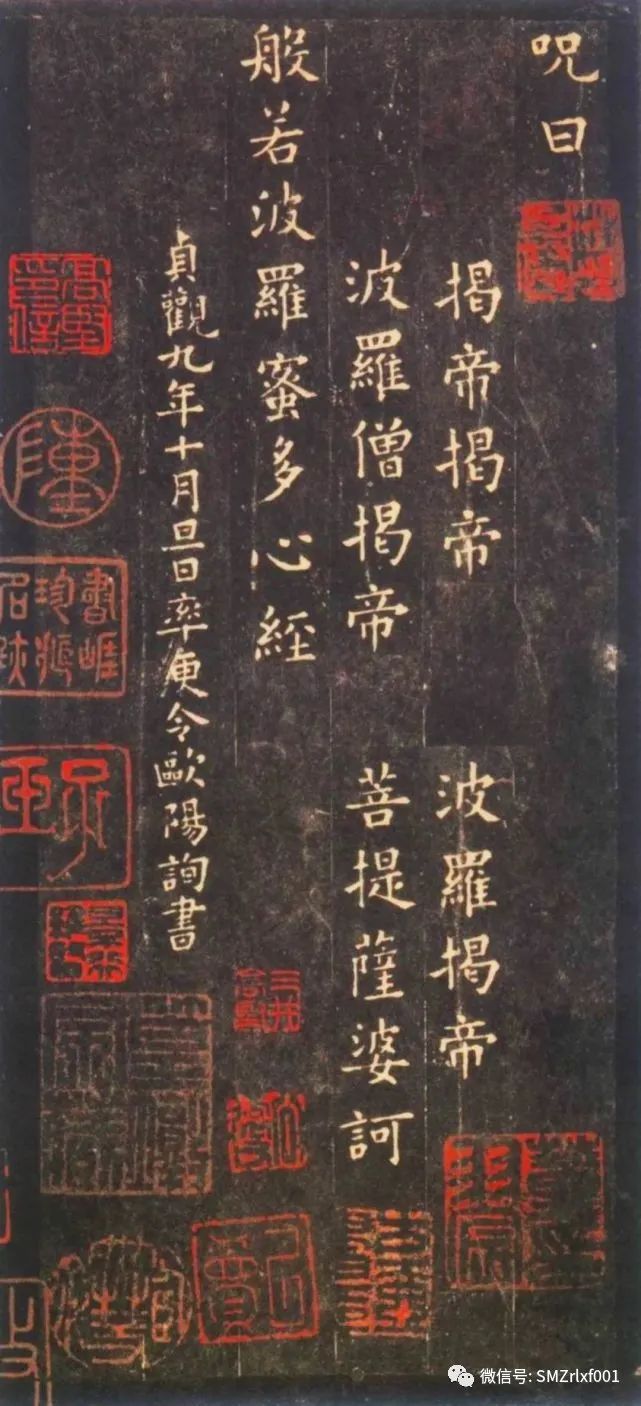 呪曰
揭帝揭帝　波羅揭帝
波羅僧揭帝　菩提薩婆訶
般若波羅蜜多心經
貞觀九年十月旦日率更令歐陽詢書
微信号: SMZrlxf001